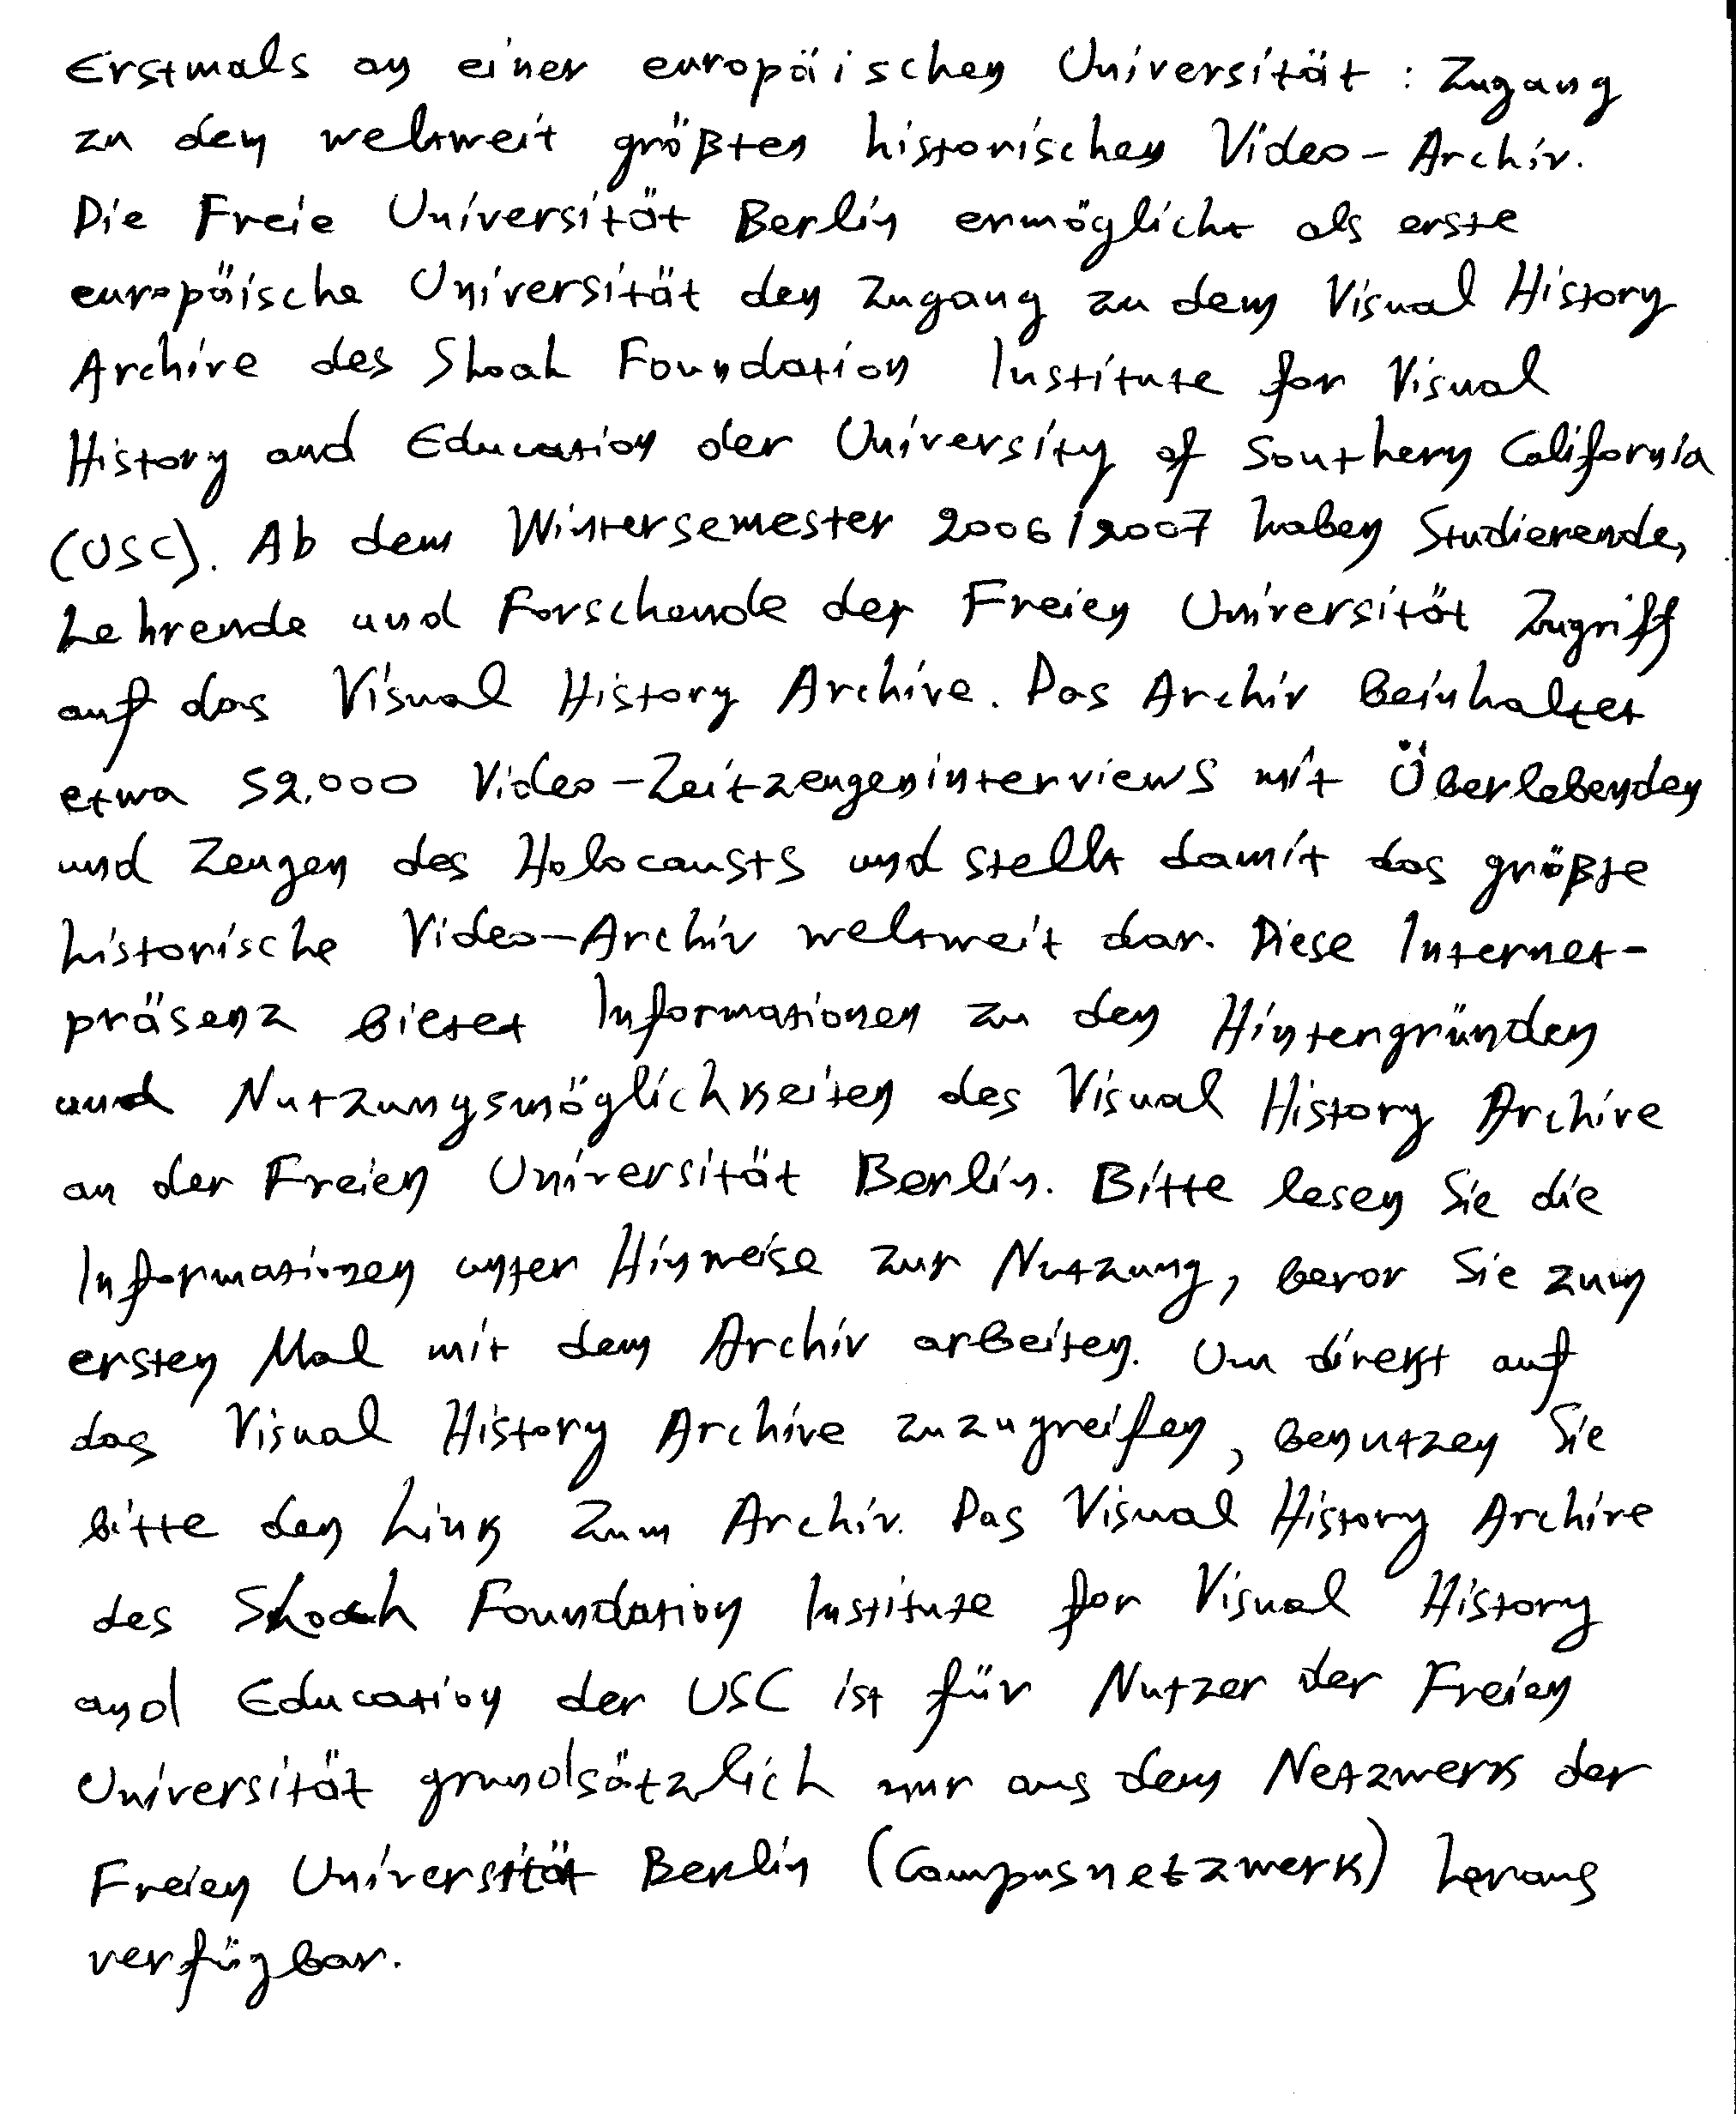 Erstmals an einer europäischen Universität: Zugang
zu den weltweit größten historischen Video-Archiv.
Die Freie Universität Berlin ermöglicht als erste
europäische Universität den Zugang zu dem Visual History
Archive des Shoah Foundation Institute for Visual
History and Education der University of Southern California
(USC). Ab dem Wintersemester 2006/2007 haben Studierende,
Lehrende und Forschende der Freien Universität Zugriff
auf das Visual History Archive. Das Archiv beinhaltet
etwa 52.000 Video-Zeitzeugeninterviews mit Überlebenden
und Zeugen des Holocausts und stellt damit das größte
historische Video-Archiv weltweit dar. Diese Internet-
präsenz bietet Informationen zu den Hintergründen
und Nutzungsmöglichkeiten des Visual History Archive
an der Freien Universität Berlin. Bitte lesen Sie die
Informationen unter Hinweise zur Nutzung, bevor Sie zum
ersten Mal mit dem Archiv arbeiten. Um direkt auf
das Visual History Archive zuzugreifen, benutzen Sie
bitte den Link zum Archiv. Das Visual History Archive
des Shoah Foundation Institute for Visual History
and Education der USC ist für Nutzer der Freien
Universität grundsätzlich nur aus dem Netzwerk der
Freien Universität Berlin (Campusnetzwerk) heraus
verfügbar.